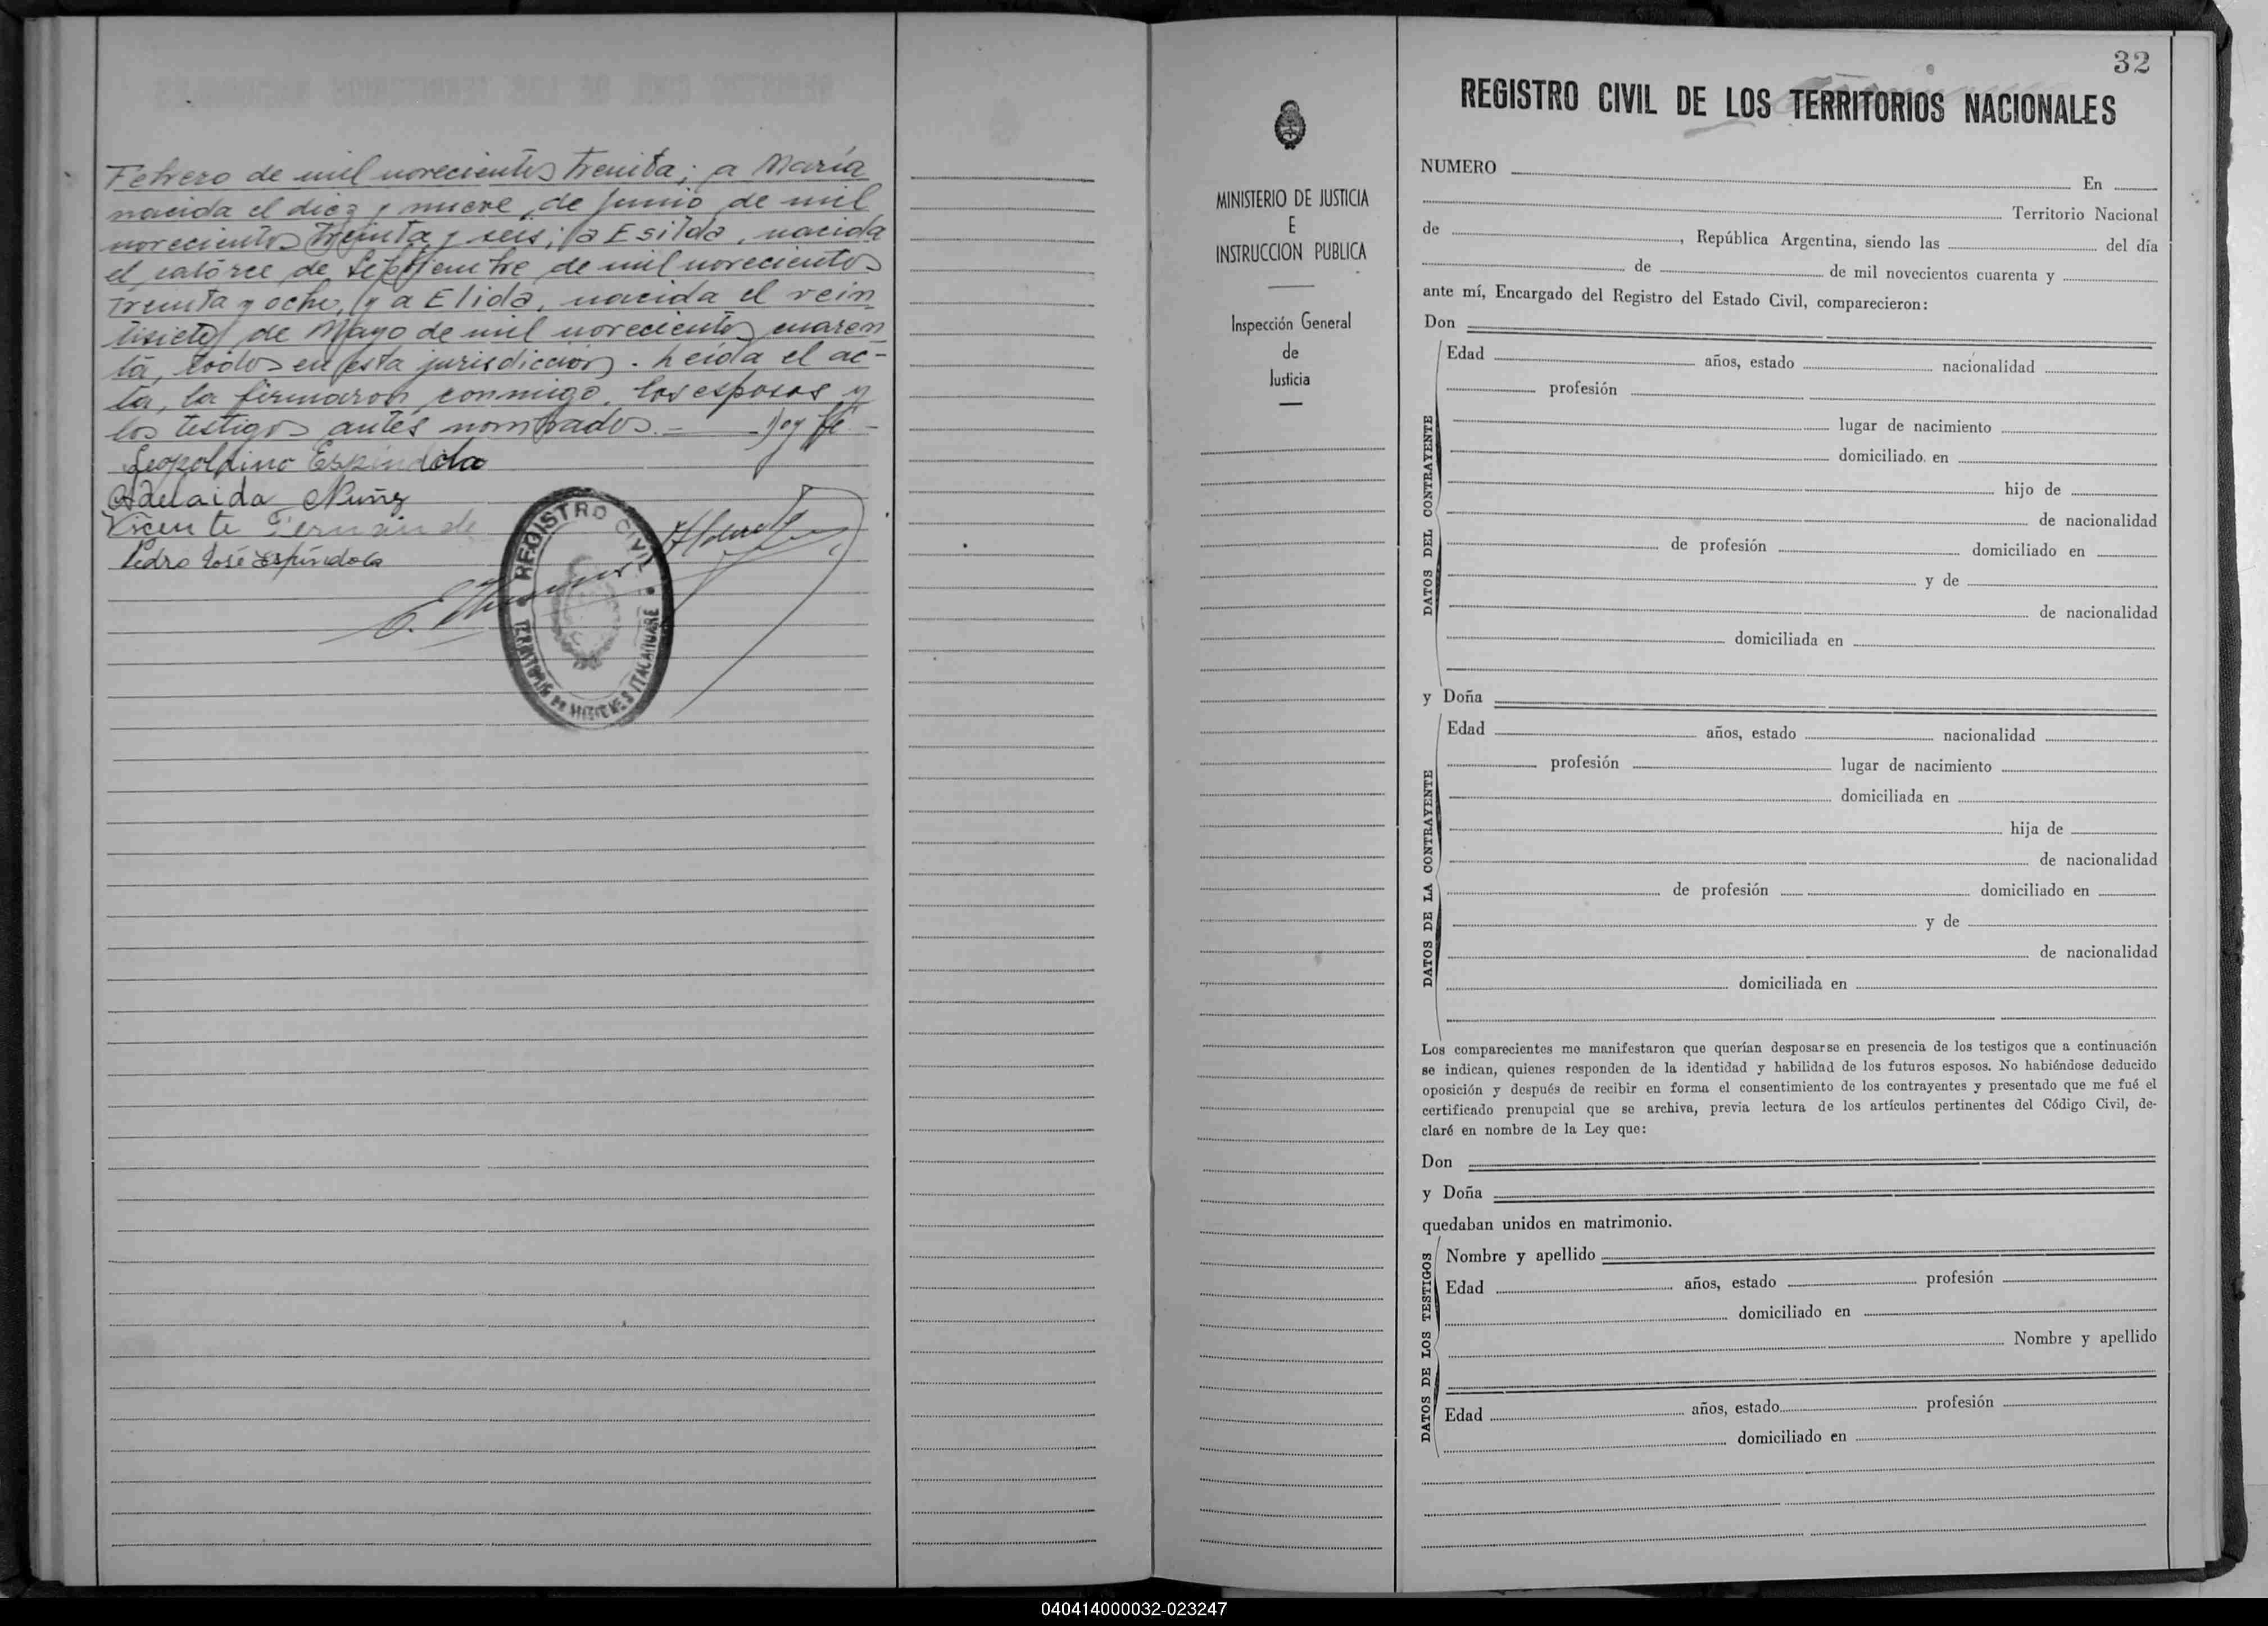 Febrero de mil novecientos treinta; a María
nacida el diez y nueve, de Junio de mil
novecientos treinta y seis; a Esilda, nacida
el catorce de Septiembre de mil novecientos
treinta y ocho, y a Elida, nacida el vein
tisiete de Mayo de mil novecientos cuaren
ta, todos en esta jurisdicción. Leída el ac-
ta, la firmaron conmigo, los esposos y
los testigos antes nombrados.- Doy fé-
Leopoldino Espíndola
Adelaida Nuñez
Vicente
Pedro José Espíndola
REGISTRO CIVIL
TERRITORIO DE MISIONES ITACARUARE
MINISTERIO DE JUSTICIA
E
INSTRUCCION PUBLICA
Inspección General
de
Justicia
32
REGISTRO CIVIL DE LOS TERRITORIOS NACIONALES
NUMERO En
Territorio Nacional
de , República Argentina, siendo las del día
de de mil novecientos cuarenta y
ante mí, Encargado del Registro del Estado Civil, comparecieron:
Don
DATOS DEL CONTRAYENTE
Edad años, estado nacionalidad
profesión
lugar de nacimiento
domiciliado. en
hijo de
de nacionalidad
de profesión domiciliado en
y de
de nacionalidad
domiciliada en
y Doña
DATOS DE LA CONTRAYENTE
Edad años, estado nacionalidad
profesión lugar de nacimiento
domiciliada en
hija de
de nacionalidad
de profesión domiciliado en
y de
de nacionalidad
domiciliada en
Los comparecientes me manifestaron que querían desposarse en presencia de los testigos que a continuación
se indican, quienes responden de la identidad y habilidad de los futuros esposos. No habiéndose deducido
oposición y después de recibir en forma el consentimiento de los contrayentes y presentado que me fué el
certificado prenupcial que se archiva, previa lectura de los artículos pertinentes del Código Civil, de-
claré en nombre de la Ley que:
Don
y Doña
quedaban unidos en matrimonio.
DATOS DE LOS TESTIGOS
Nombre y apellido
Edad años, estado profesión
domiciliado en
Nombre y apellido
Edad años, estado profesión
domiciliado en
040414000032-023247